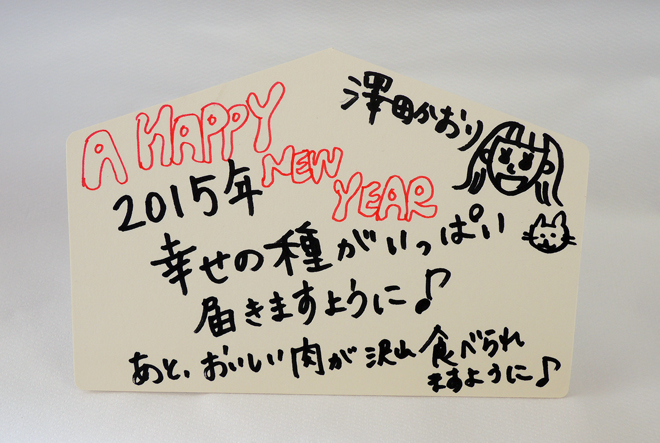 澤田かおり
A HAPPY
NEW
YEAR
2015年
幸せの種がいっぱい
届きますように♪
あと、おいしい肉が沢山食べられ
ますように♪